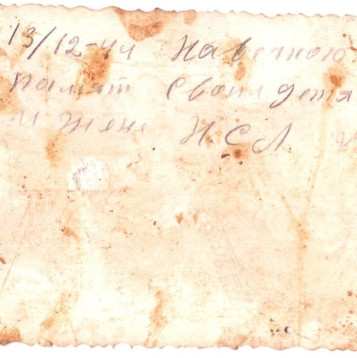 13/12-41 На вечною
памят своим детя
и жене Н.С.Л.